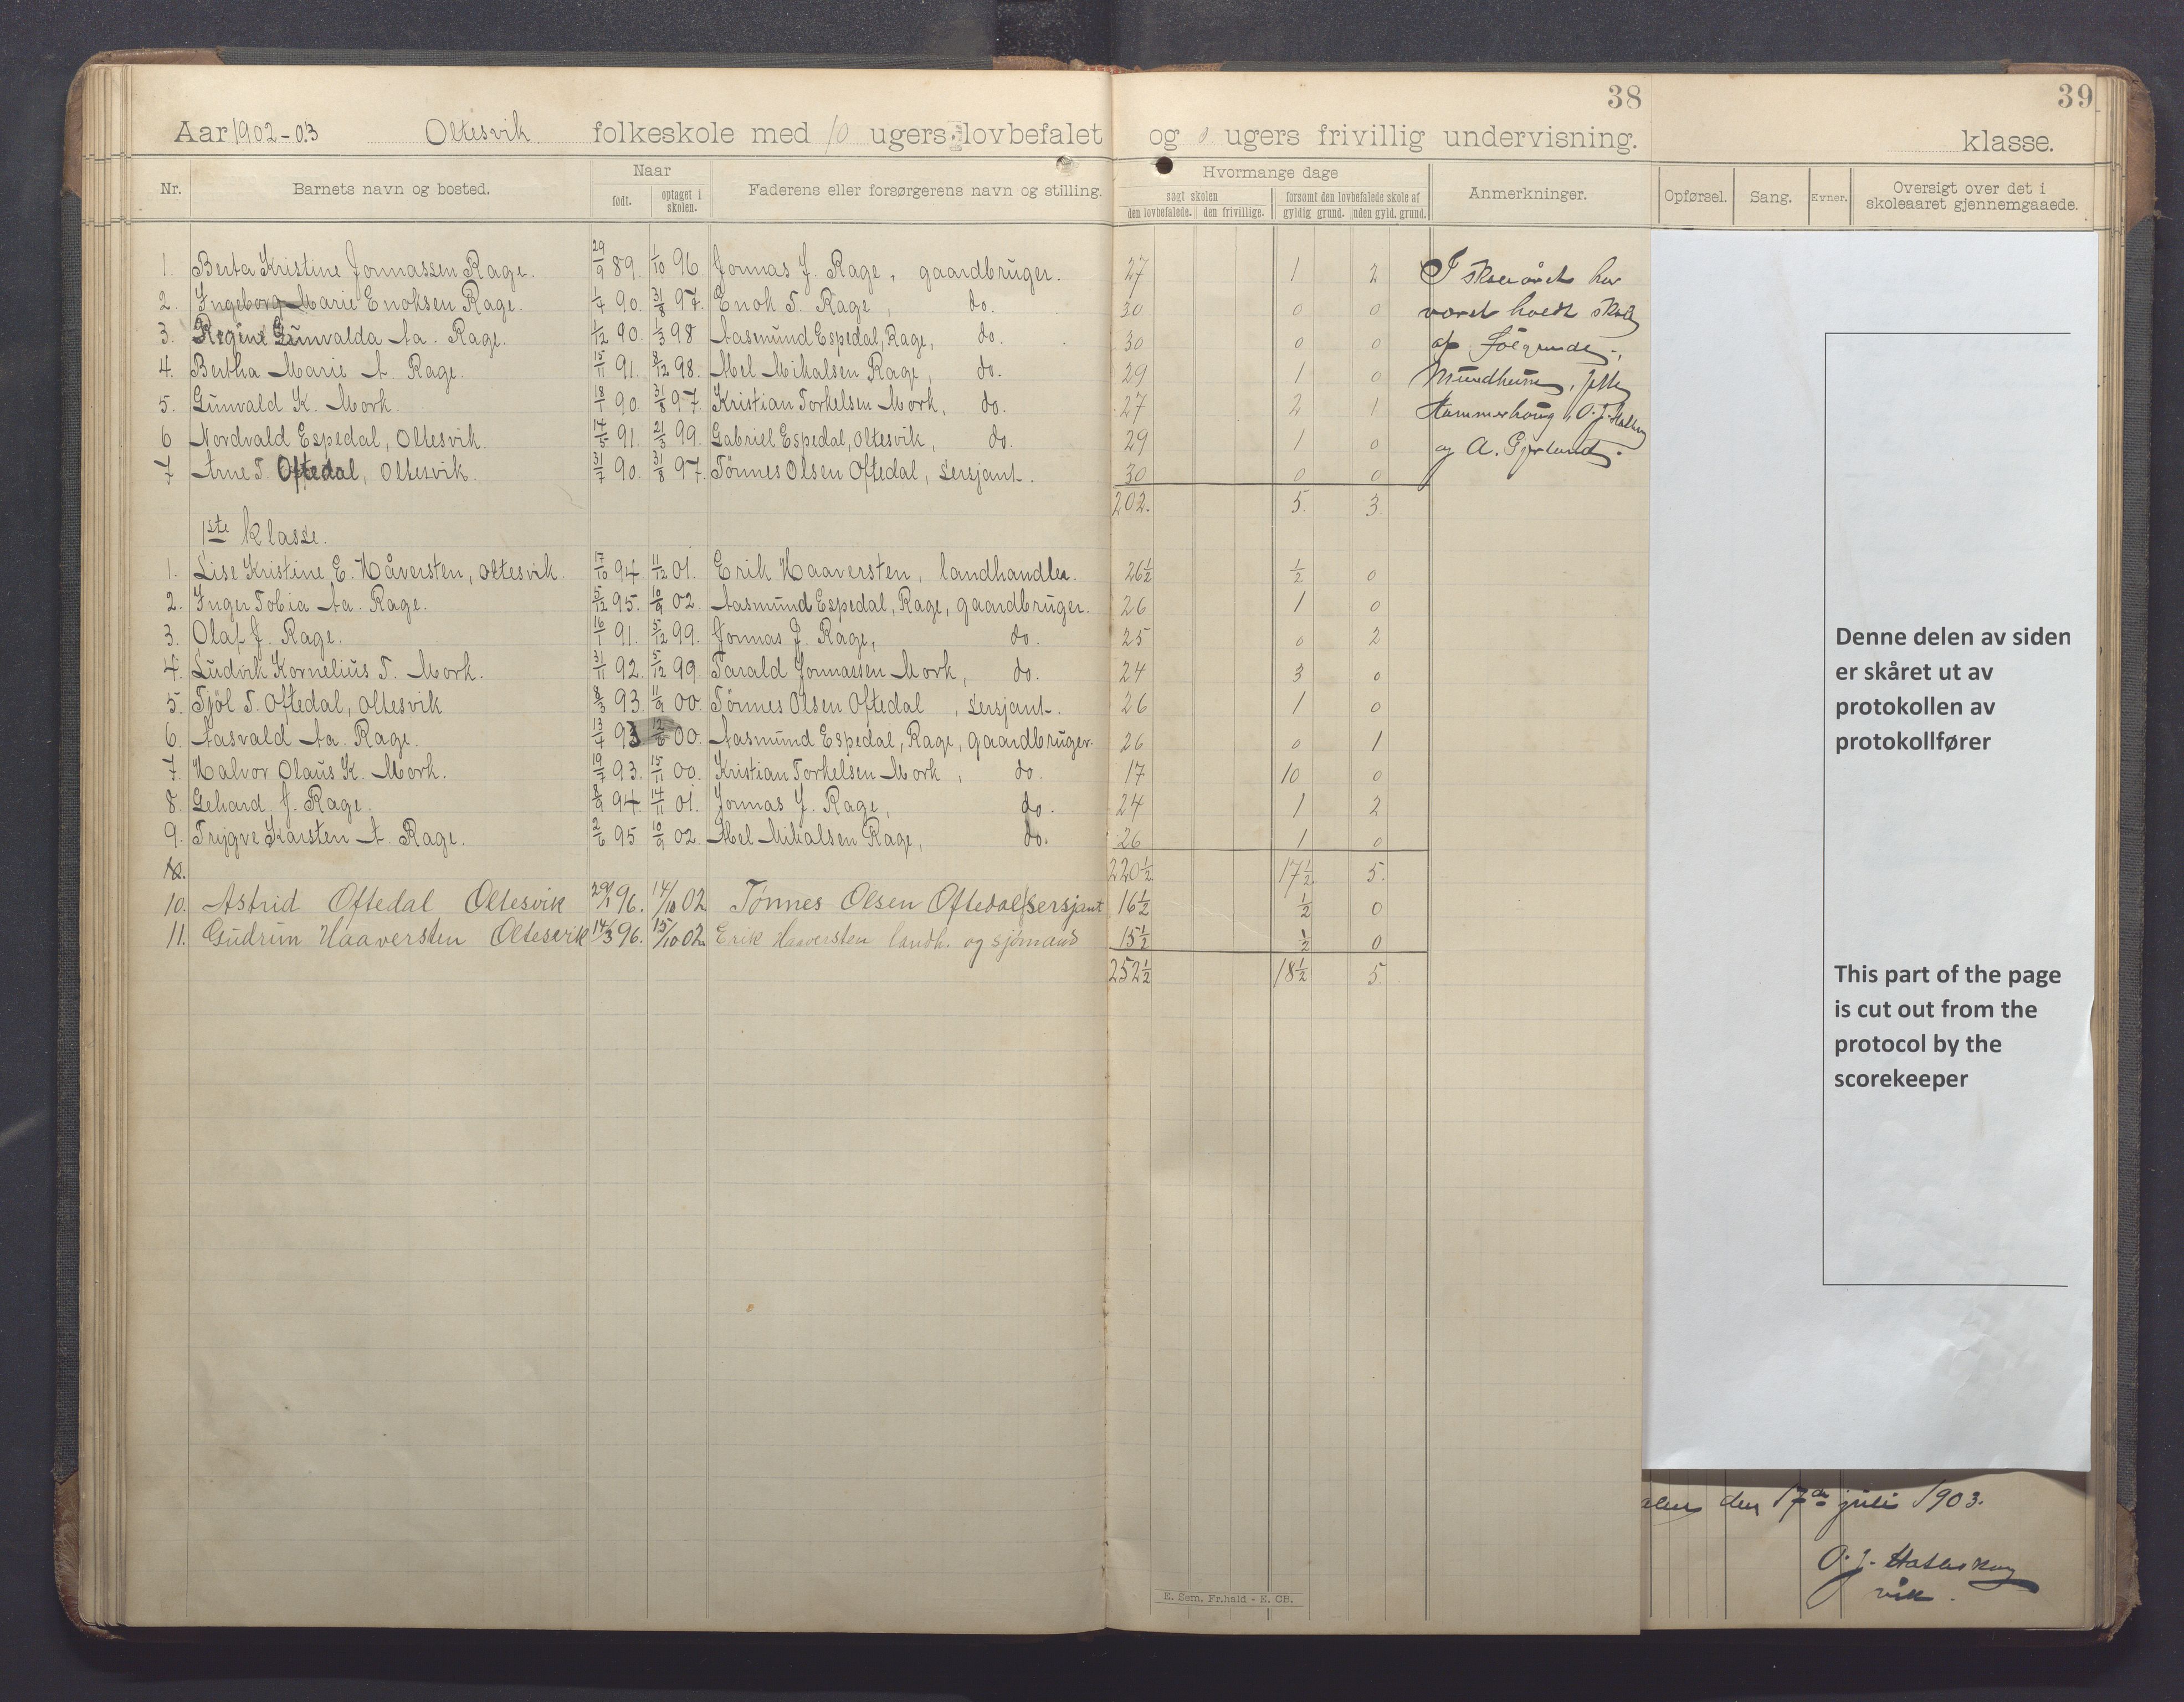 38
39
Aar 1902-03 Oltesvik folkeskole med 10 ugers lovbefalet og 0 ugers frivillig undervisning. klasse.
Nr. Barnets navn og bosted. Naar født. optaget i skolen. Faderens eller forsørgerens navn og stilling. Hvormange dage søgt skolen den lovbefalede. den frivillige. forsømt den lovbefalede skole af gyldig grund. uden gyld. grund. Anmerkninger. Opførsel. Sang. Evner. Oversigt over det i skoleaaret gjennemgaaede.
1. Berta Kristine Jonnassen Rage. 29/9 89. 1/10 96 Jonnas J. Rage, gaardbruger. 27 1 2 I skoleåret har
2. Ingeborg Marie Enoksen Rage. 1/4 90. 31/8 97. Enok T. Rage, do. 30 0 0 været holdt skole
3. Regine Gunvalda Aa. Rage. 1/12 90. 1/3 98 Aasmund Espedal, Rage, do. 30 0 0 af
4. Bertha Marie A. Rage. 15/11 91. 8/12 98. Abel Mikalsen Rage, do. 29 1 0 Mundheim,
5. Gunvald K. Mork. 18/1 90. 31/8 97. Kristian Torkelsen Mork, do. 27 2 1 Hammerhoug, O. J.
6 Nordvald Espedal, Oltesvik. 14/5 91. 21/3 99. Gabriel Espedal, Oltesvik, do. 29 1 0 og A.
7 Arne T. Oftedal, Oltesvik. 31/7 90. 31/8 97. Tönnes Olsen Oftedal, sersjant. 30 0 0
202. 5. 3.
1ste klasse.
1. Lise Kristine E. Håversten, Oltesvik. 17/10 94. 11/12 01. Erik Haaversten, landhandler. 26½ ½ 0
2. Inger Tobia Aa. Rage. 5/12 95. 10/9 02. Aasmund Espedal, Rage, gaardbruger. 26 1 0
3. Olaf J. Rage. 16/1 91. 5/12 99. Jonnas J. Rage, do. 25 0 2
4. Ludvik Kornelius T. Mork. 31/11 92. 5/12 99. Tarald Jonnassen Mork, do. 24 3 0
5. Tjöl T. Oftedal, Oltesvik 8/3 93. 11/9 00. Tönnes Olsen Oftedal, sersjant. 26 1 0
6. Aasvald Aa. Rage. 13/4 93 00. Aasmund Espedal, Rage, gaardbruger. 26 0 1
7. Halvor Olaus K. Mork. 19/7 93. 15/11 00. Kristian Torkelsen Mork, do. 17 10 0
8. Gehard J. Rage. 8/9 94. 14/11 01. Jonnas J. Rage, do. 24 1 2
9. Trygve Karsten A. Rage. 2/6 95 10/9 02. Abel Mikalsen Rage, do. 26 1 0
220½ 17½ 5.
10. Astrid Oftedal Oltesvik 29/1 96. 14/10 02 Tönnes Olsen Oftedal sersjant 16½ ½ 0
11. Gudrun Haaversten Oltesvik 14/3 96. 15/10 02. Erik Haaversten landh. og sjømand 15½ ½ 0
252½ 18½ 5.
Denne delen av siden
er skåret ut av
protokollen av
protokollfører
This part of the page
is cut out from the
protocol by the
scorekeeper
alen den 17de juli 1903.
O. J.
vik.
E. Sem, Fr.hald - E. CB.